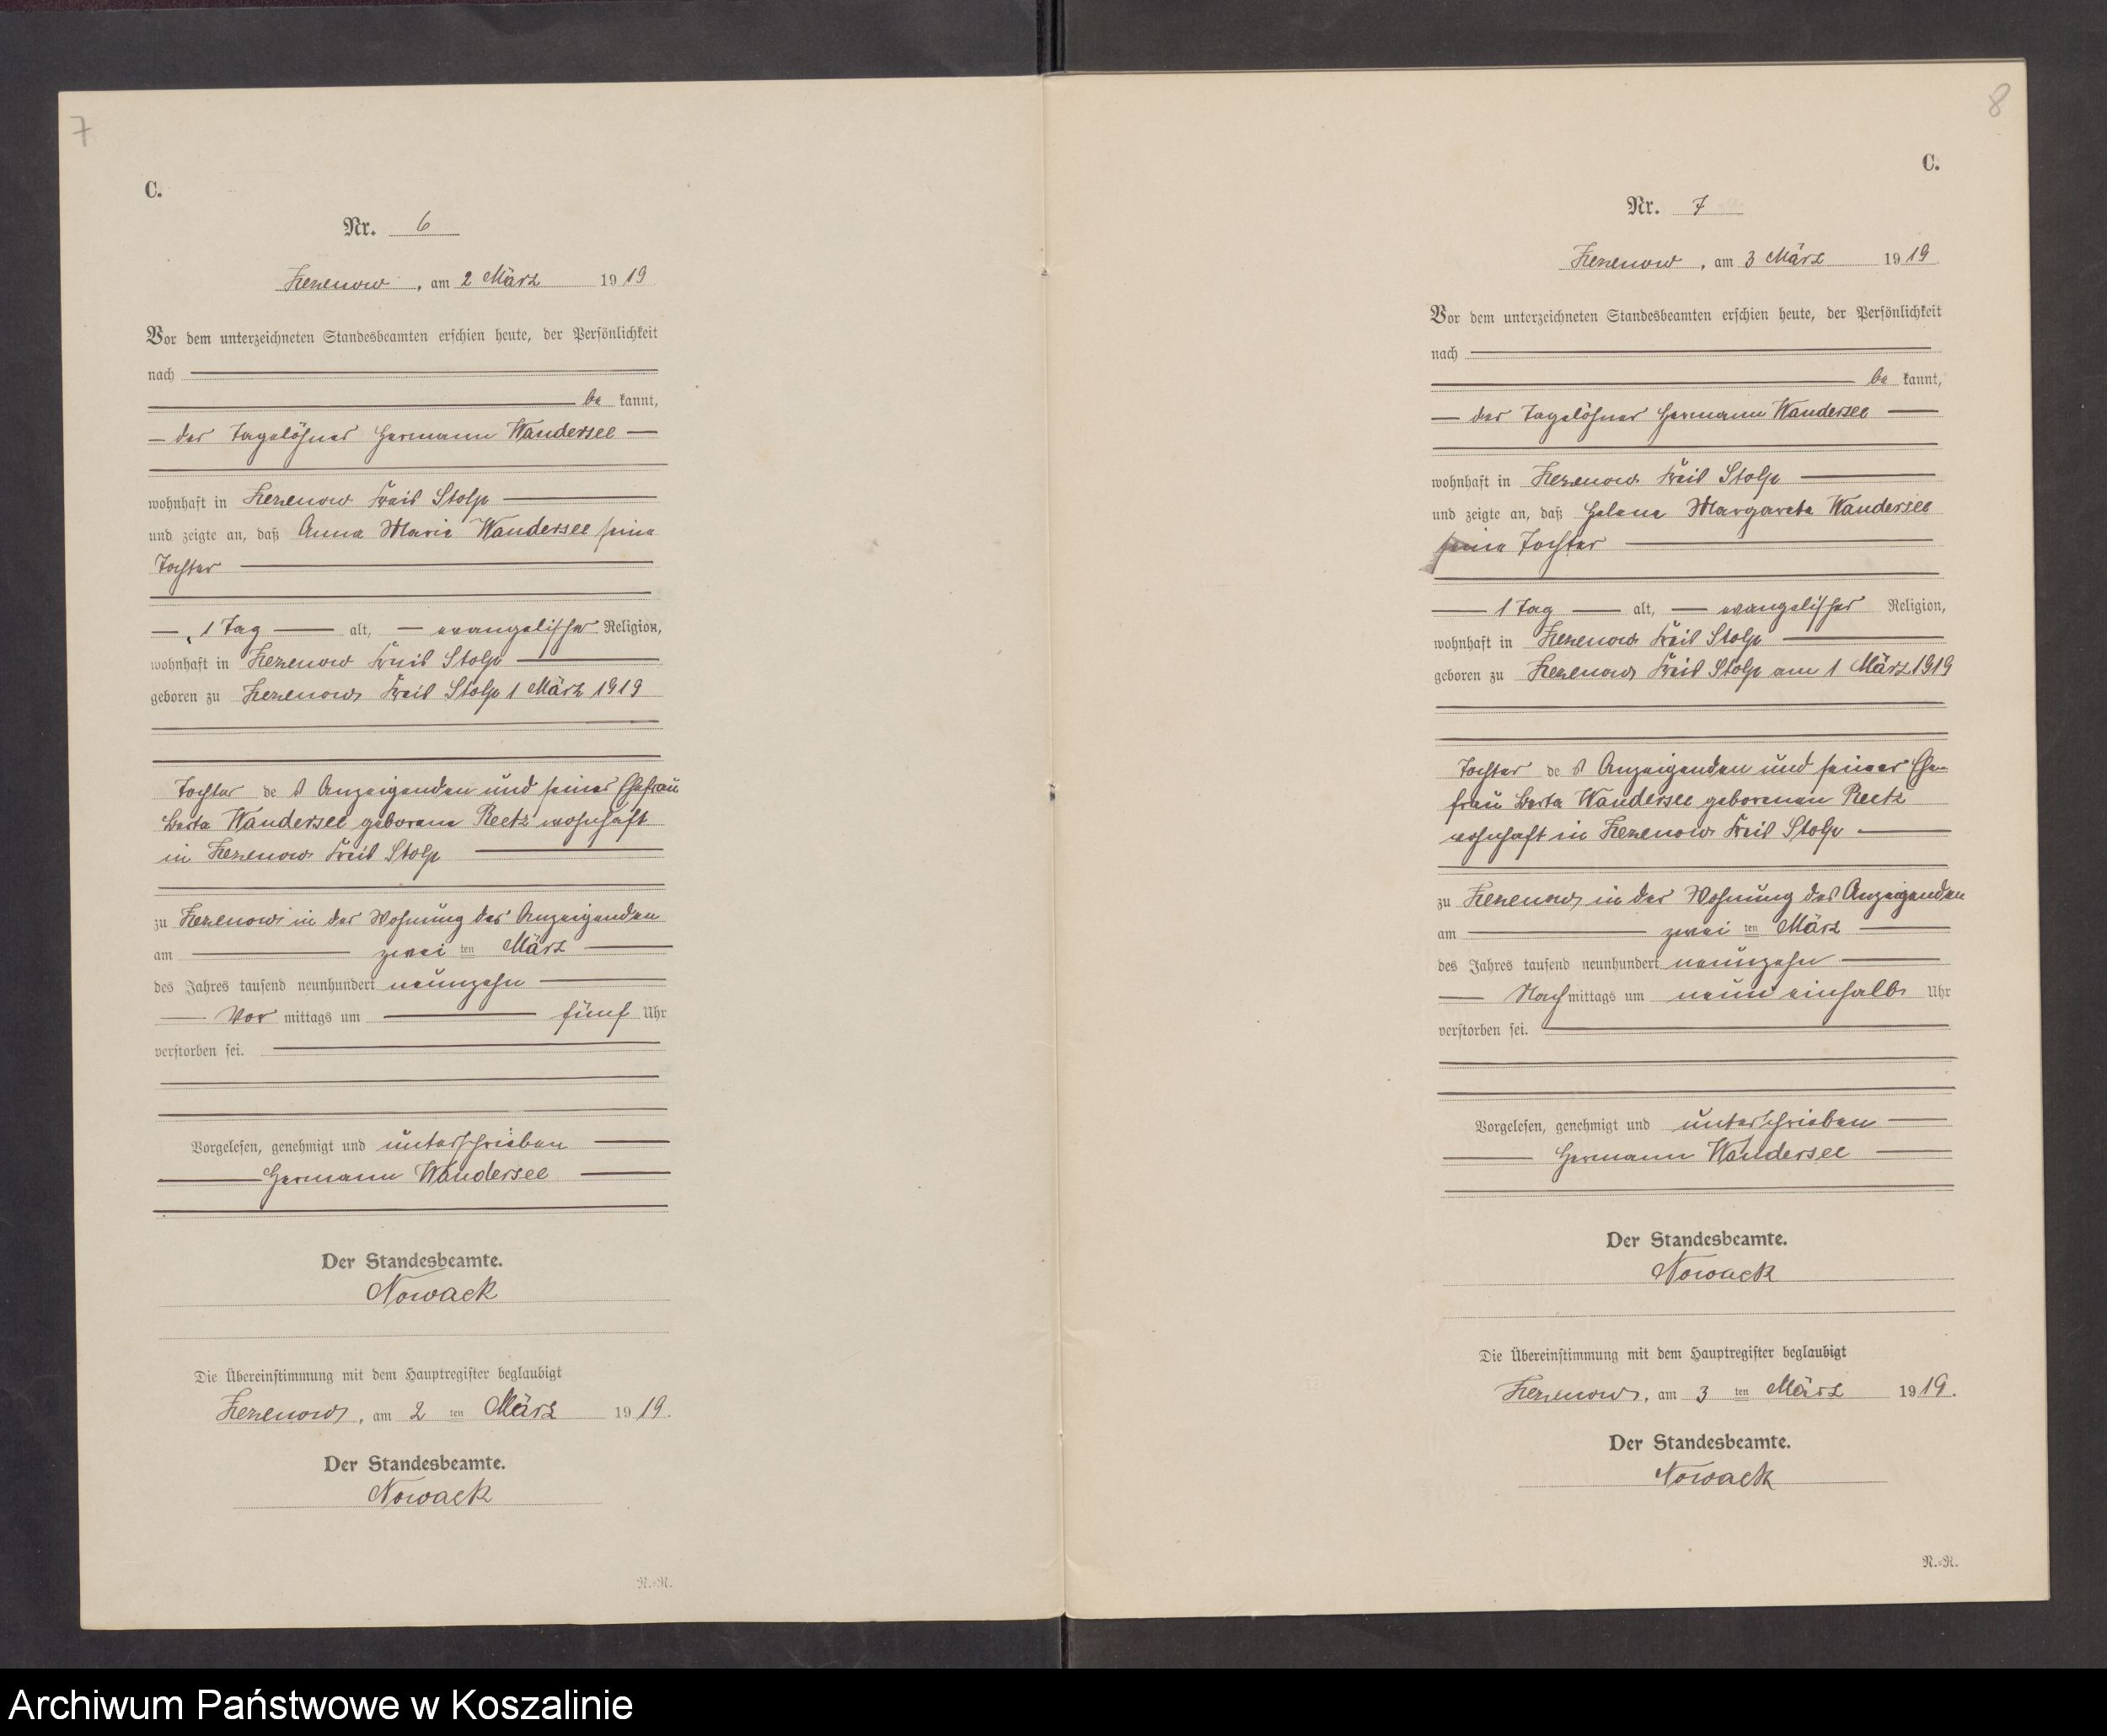 7
C.
Nr. 6
Zezenow, am 2 März 1919
Vor dem unterzeichneten Standesbeamten erschien heute, der Persönlichkeit
nach
be kannt,
der Tagelöhner Hermann Wandersee
wohnhaft in Zezenow Kreis Stolp
und zeigte an, daß Anna Marie Wandersee seine
Tochter
1 Tag alt, evangelischer Religion,
wohnhaft in Zezenow Kreis Stolp
geboren zu Zezenow Kreis Stolp 1 März 1919
Tochter de s Anzeigenden und seiner Ehefrau
Berta Wandersee geborene Reetz wohnhaft
in Zezenow Kreis Stolp
zu Zezenow in der Wohnung des Anzeigenden
am zwei ten März
des Jahres tausend neunhundert neunzehn
Vor mittags um fünf Uhr
verstorben sei.
Vorgelesen, genehmigt und unterschrieben
Hermann Wandersee
Der Standesbeamte.
Nowack
Die Übereinstimmung mit dem Hauptregister beglaubigt
Zezenow, am 2 ten März 1919.
Der Standesbeamte.
Nowack
N.-R.
8
C.
Nr. 7
Zezenow, am 3 März 1919
Vor dem unterzeichneten Standesbeamten erschien heute, der Persönlichkeit
nach
be kannt,
der Tagelöhner Hermann Wandersee
wohnhaft in Zezenow Kreis Stolp
und zeigte an, daß Helene Margarete Wandersee
seine Tochter
1 Tag alt, evangelischer Religion,
wohnhaft in Zezenow Kreis Stolp
geboren zu Zezenow Kreis Stolp am 1 März 1919
Tochter de s Anzeigenden und seiner Ehe-
frau Berta Wandersee geborenen Reetz
wohnhaft in Zezenow Kreis Stolp
zu Zezenow in der Wohnung des Anzeigenden
am zwei ten März
des Jahres tausend neunhundert neunzehn
Nach mittags um neun einhalb Uhr
verstorben sei.
Vorgelesen, genehmigt und unterschrieben
Hermann Wandersee
Der Standesbeamte.
Nowack
Die Übereinstimmung mit dem Hauptregister beglaubigt
Zezenow, am 3 ten März 1919.
Der Standesbeamte.
Nowack
N.-R.
Archiwum Państwowe w Koszalinie